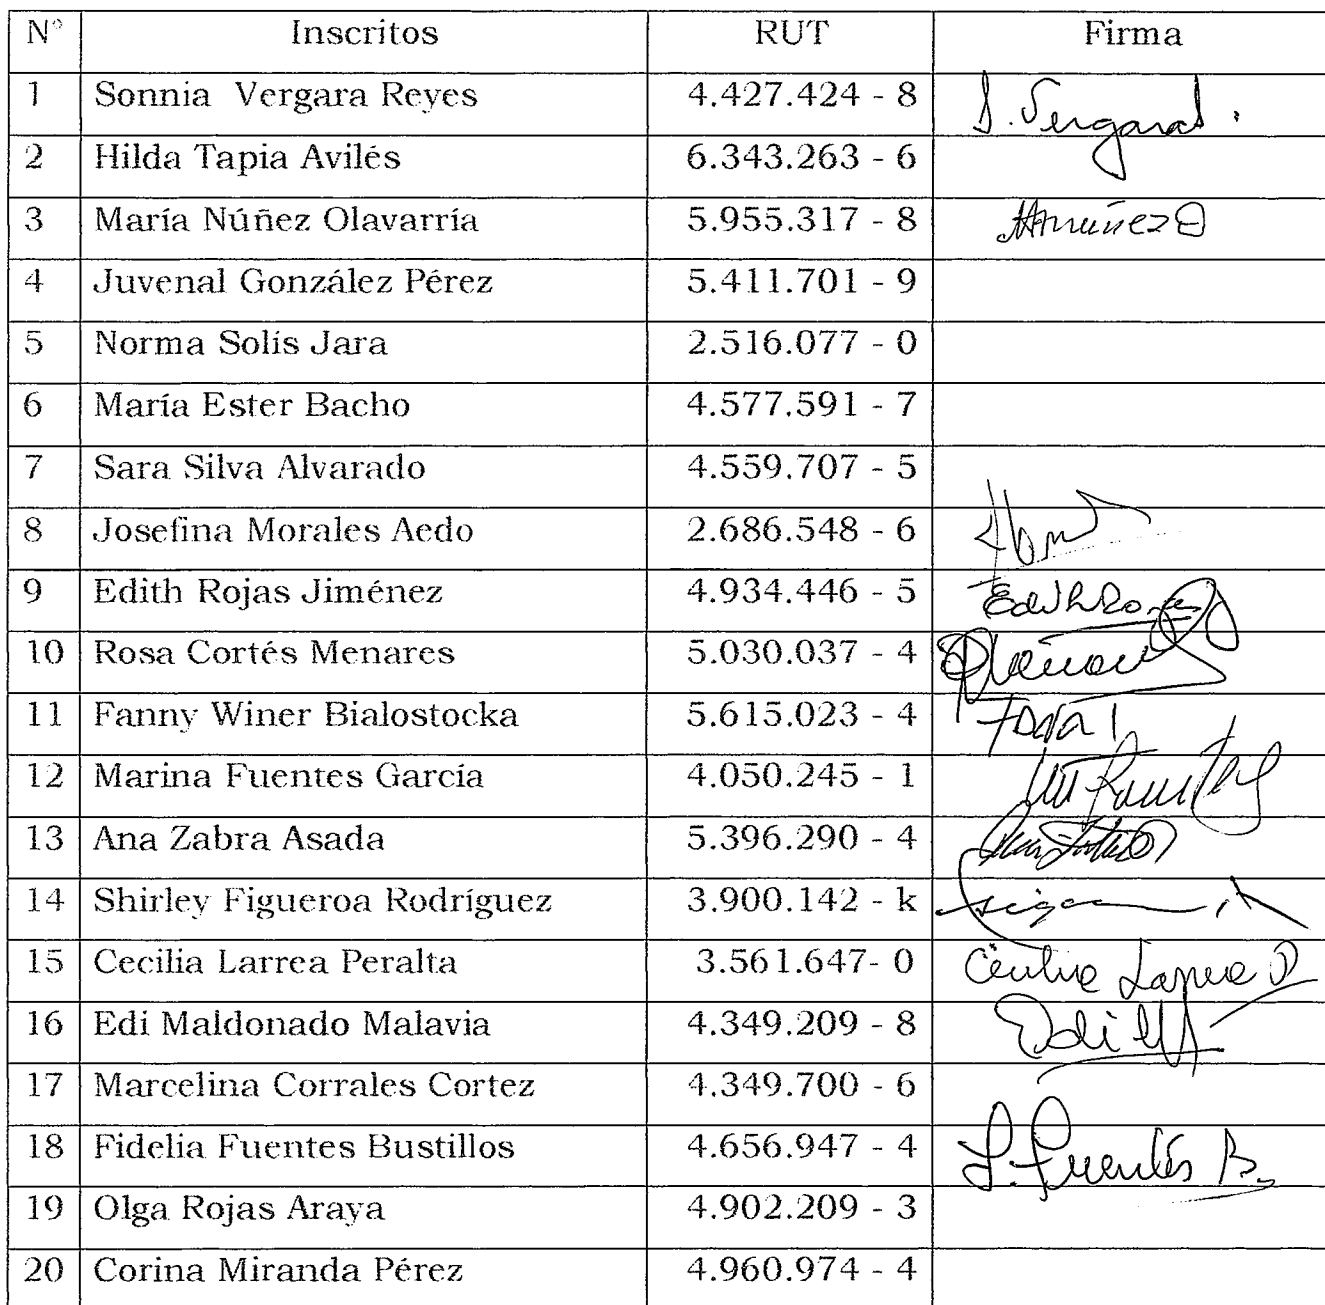 N° Inscritos RUT Firma
1 Sonnia Vergara Reyes 4.427.424 - 8 S. Vergara
2 Hilda Tapia Avilés 6.343.263 - 6
3 María Núñez Olavarría 5.955.317 - 8
4 Juvenal González Pérez 5.411.701 - 9
5 Norma Solís Jara 2.516.077 - 0
6 María Ester Bacho 4.577.591 - 7
7 Sara Silva Alvarado 4.559.707 - 5
8 Josefina Morales Aedo 2.686.548 - 6
9 Edith Rojas Jiménez 4.934.446 - 5 Edith
10 Rosa Cortés Menares 5.030.037 - 4
11 Fanny Winer Bialostocka 5.615.023 - 4
12 Marina Fuentes García 4.050.245 - 1
13 Ana Zabra Asada 5.396.290 - 4
14 Shirley Figueroa Rodríguez 3.900.142 - k
15 Cecilia Larrea Peralta 3.561.647- 0 Cecilia Larrea P
16 Edi Maldonado Malavia 4.349.209 - 8 Edi
17 Marcelina Corrales Cortez 4.349.700 - 6
18 Fidelia Fuentes Bustillos 4.656.947 - 4 F. Fuentes B.
19 Olga Rojas Araya 4.902.209 - 3
20 Corina Miranda Pérez 4.960.974 - 4